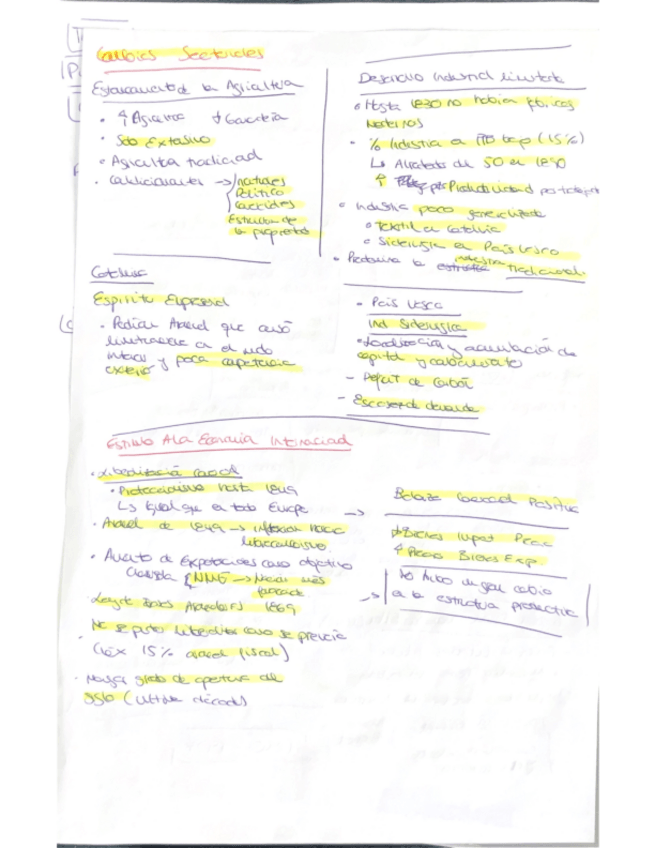 Cambios Sectoriales
Estancamiento de la Agricultura
• ↑ Agricultura ↓ Ganadería
• Solo Extensivo
• Agricultura tradicional
• Condicionantes → naturales
Político
Estructura de
la propiedad
Desarrollo Industrial limitado
• Hasta 1830 no habían fábricas
modernas
• % Industria en PIB bajo (15%)
↳ Alrededor del 50 en 1850
↑ Productividad por trabajador
• Industria poco generalizada
• Textil en Cataluña
• Siderurgia en País Vasco
• Predomina la industria tradicional
Cataluña
Espíritu Empresarial
• Pedían Arancel que
en el
interior y poca competencia
exterior
• País Vasco
Ind Siderurgica
• Localización y acumulación de
capital y conocimiento
- Déficit de Carbón
- Escasez de demanda
Estimulo A la Economía Internacional
• Liberalización comercial
• Proteccionismo hasta 1849
↳ Igual que en todo Europa
• Arancel de 1849 →
librecambismo.
• Aumento de Exportaciones como objetivo
NMF →
favorecida
Ley de Bases Arancelaria 1869
No se pudo liberalizar como se preveía
15% arancel fiscal)
• Mayor grado de apertura del
siglo (última década)
→ Balanza Comercial Positiva
↓ Bienes Import Precio
↑ Precio Bienes Exp.
→ No hubo ningún cambio
en la estructura productiva